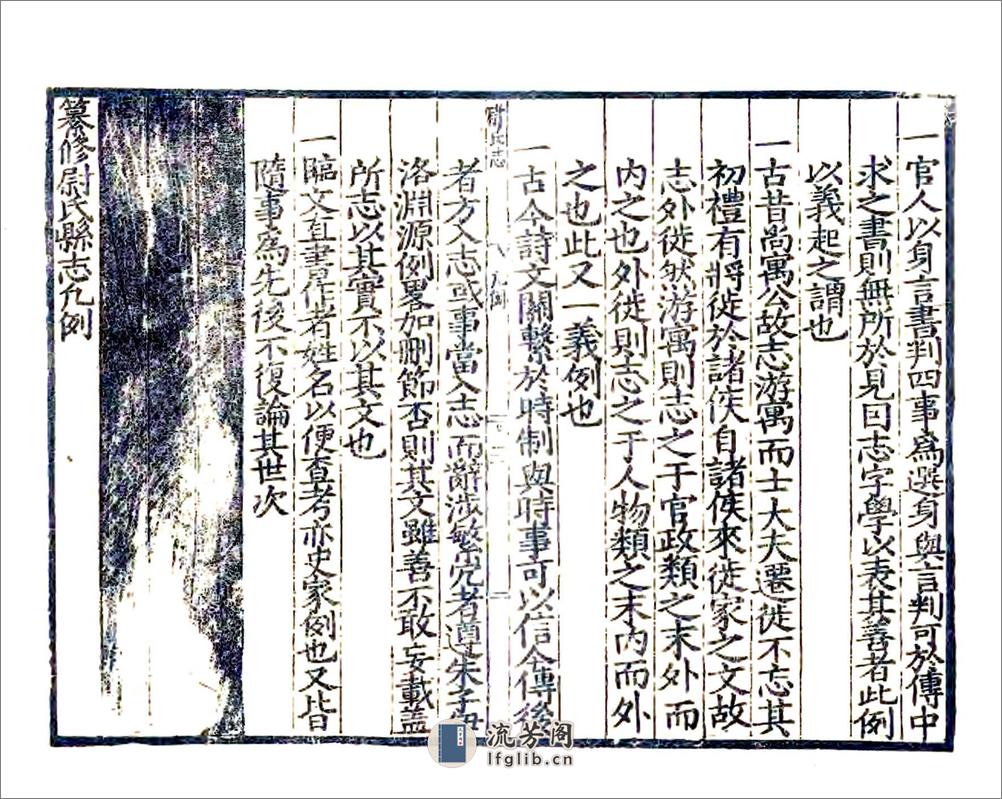 一官人以身言書判四事為選身與言判可於傳中
求之書則無所於見曰志字學以表其善者此例
以義起之謂也
一古昔尚寓公故志游寓而士大夫遷徙不忘其
初禮有將徙於諸侯自諸侯來徙家之文故
志外徙然游寓則志之于官政類之末外而
内之也外徙則志之于人物類之末内而外
之也此又一義例也
尉氏志
凡例
一古今詩文關繫於時制與時事可以信今傳後
者方入志或事當入志而辭涉繁冗者遵朱子伊
洛淵源例畧加刪節否則其文雖善不敢妄載蓋
所志以其實不以其文也
一臨文直書作者姓名以便查考亦史家例也又皆
隨事為先後不復論其世次
纂修尉氏縣志凡例
流芳阁
lfglib.cn